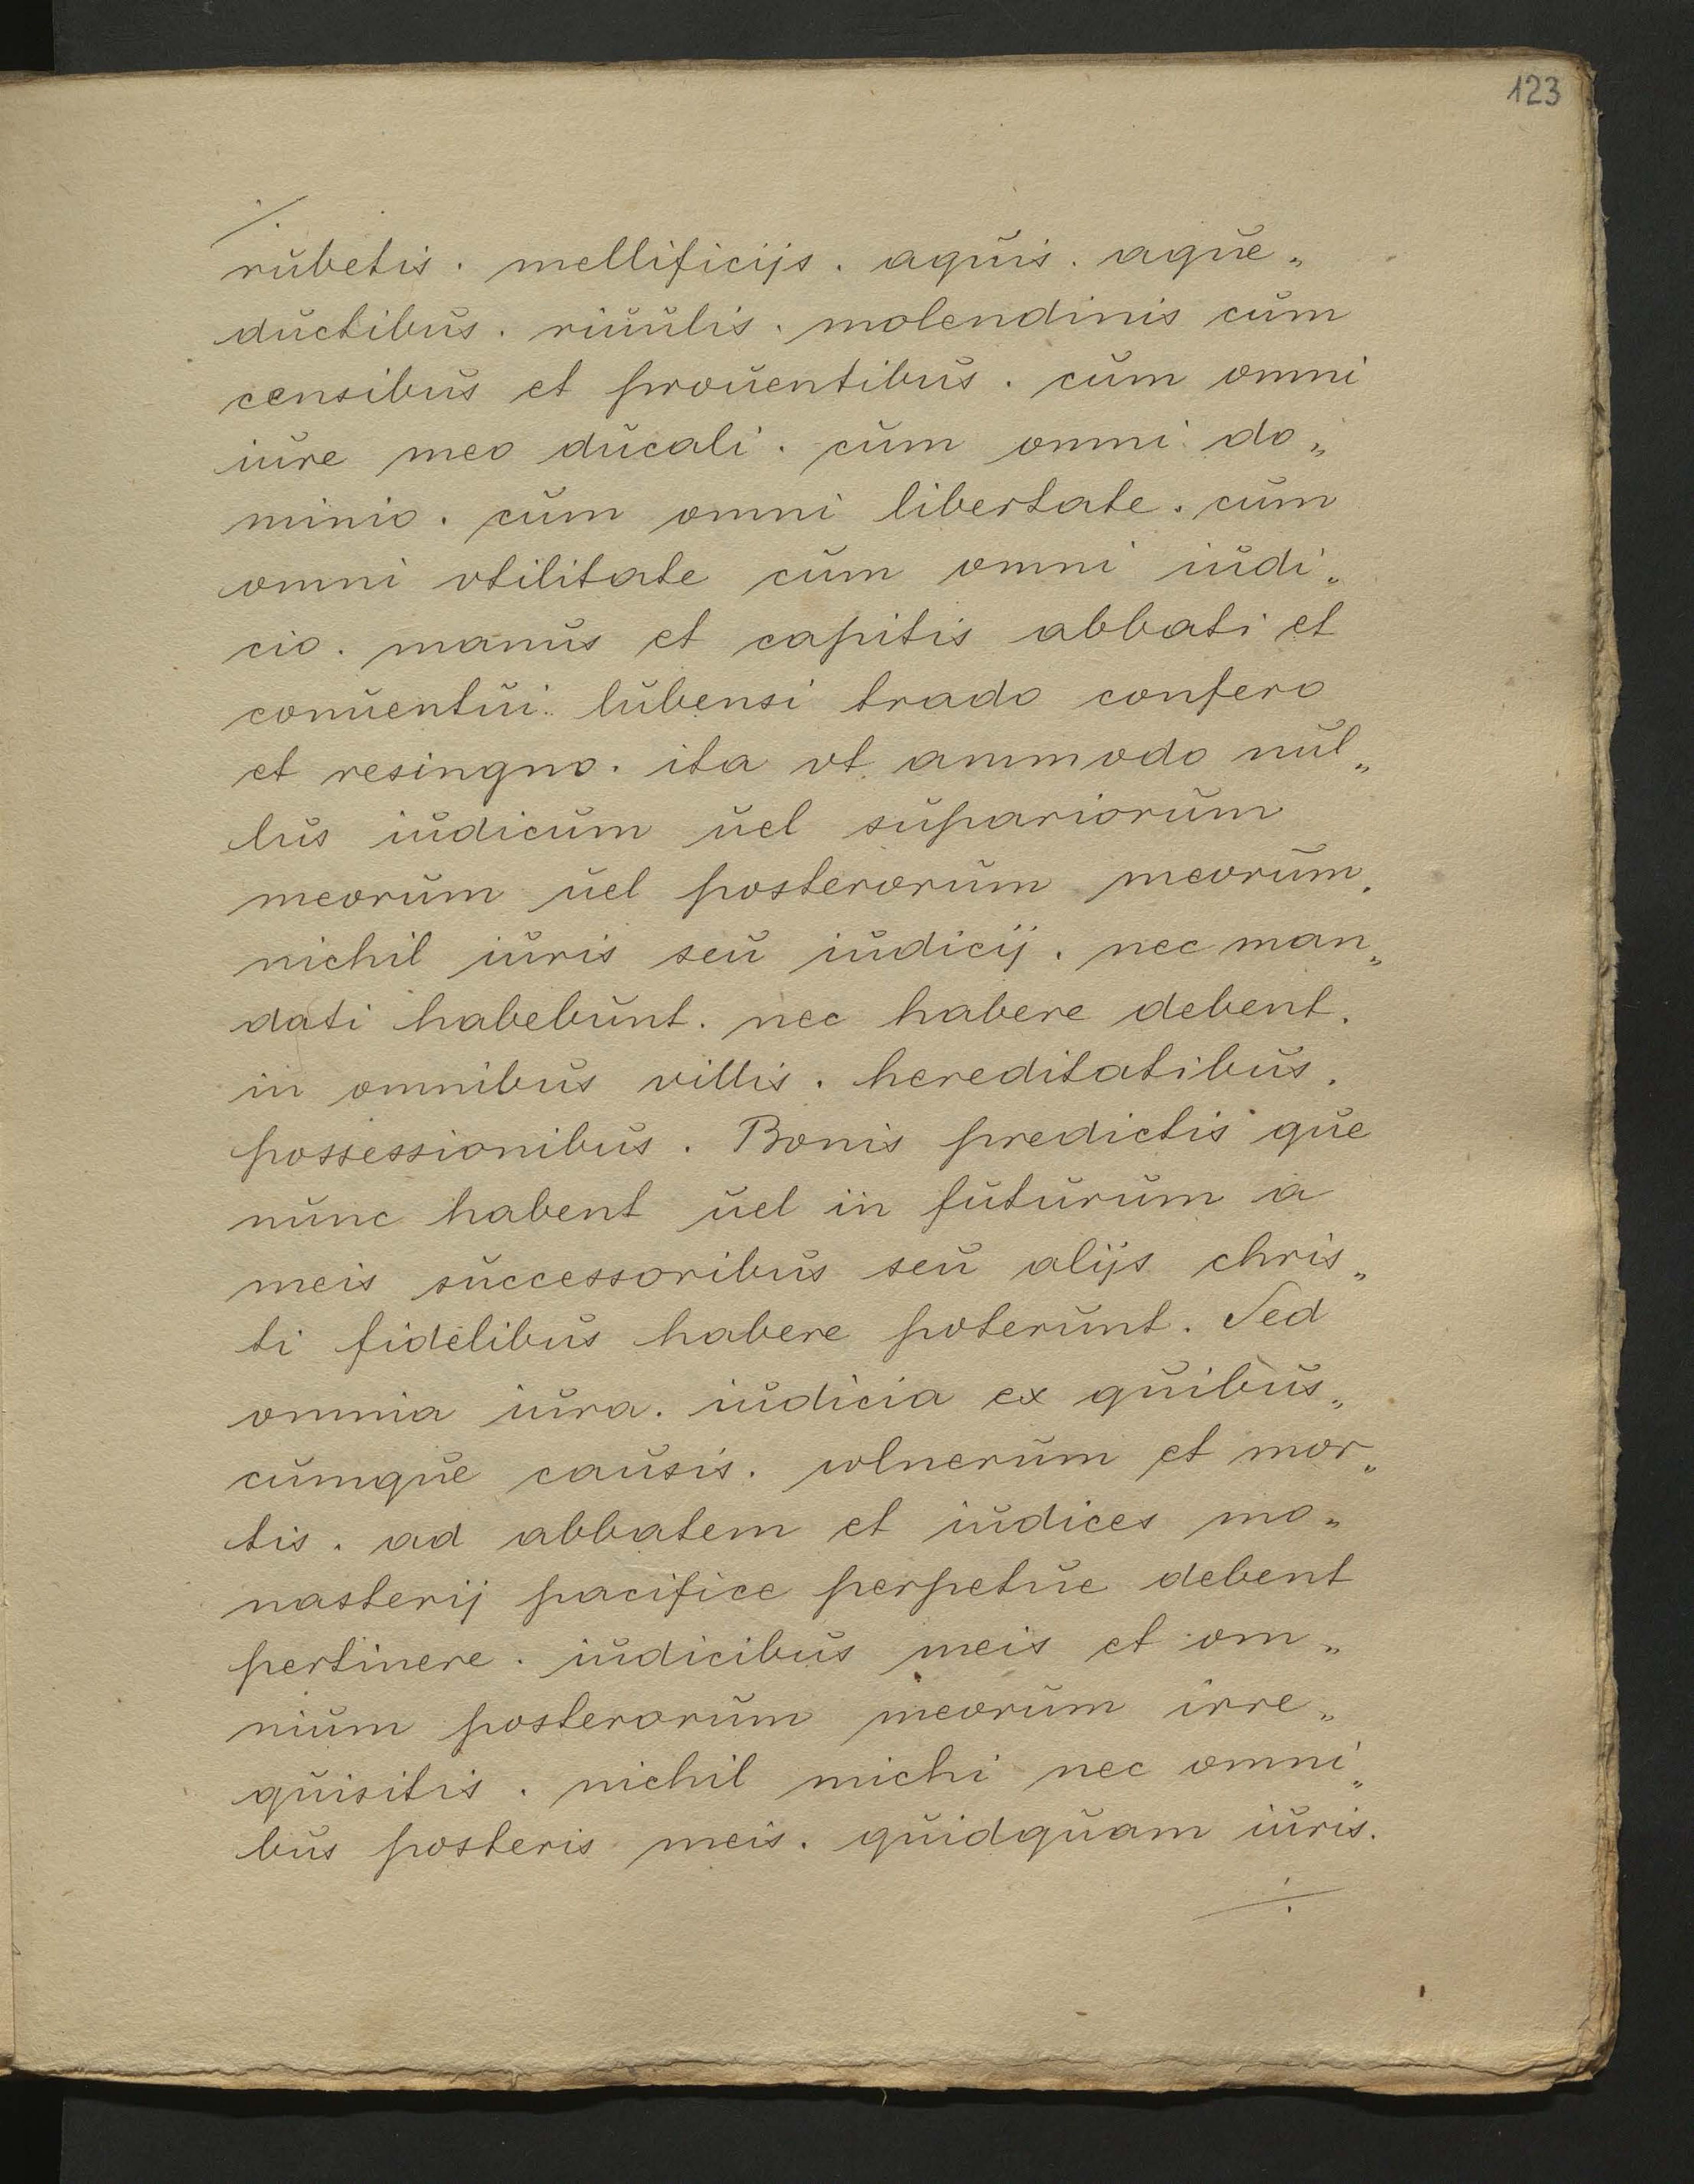 123
./.
rubetis. mellificijs. aquis. aque„
ductibus. riuulis. molendinis cum
censibus et prouentibus. cum omni
iure meo ducali. cum omni do„
minio. cum omni libertate. cum
omni vtilitate cum omni iudi„
cio. manus et capitis abbati et
conuentui lubensi trado confero
et resingno. ita vt ammodo nul„
lus iudicum uel supariorum
meorum uel posterorum meorum.
nichil iuris seu iudicij. nec man„
dati habebunt. nec habere debent.
in omnibus villis. hereditatibus.
possessionibus. Bonis predictis que
nunc habent uel in futurum a
meis successoribus seu alijs chris„
ti fidelibus habere poterunt. Sed
omnia iura. iudicia ex quibus„
cumque causis. wlnerum et mor„
tis. ad abbatem et iudices mo„
nasterij pacifice perpetue debent
pertinere. iudicibus meis et om„
nium posterorum meorum irre„
quisitis. nichil michi nec omni„
bus posteris meis. quidquam iuris.
./.